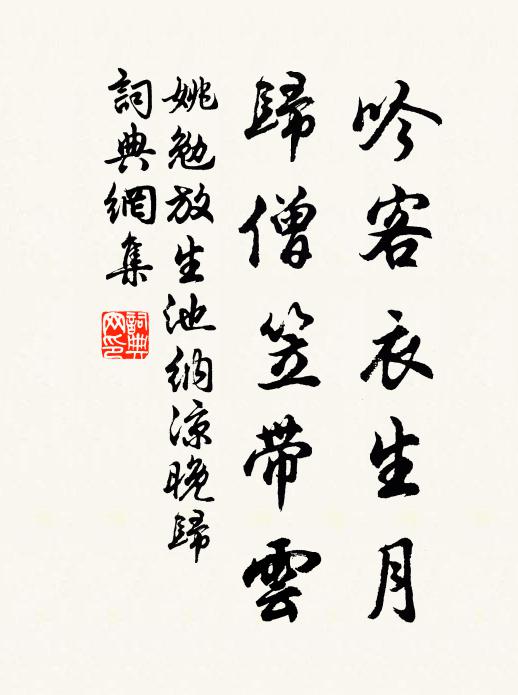 吟客衣生月
歸僧笠帶雲
姚勉放生池納凉晚歸
詞典網集
詞典网印